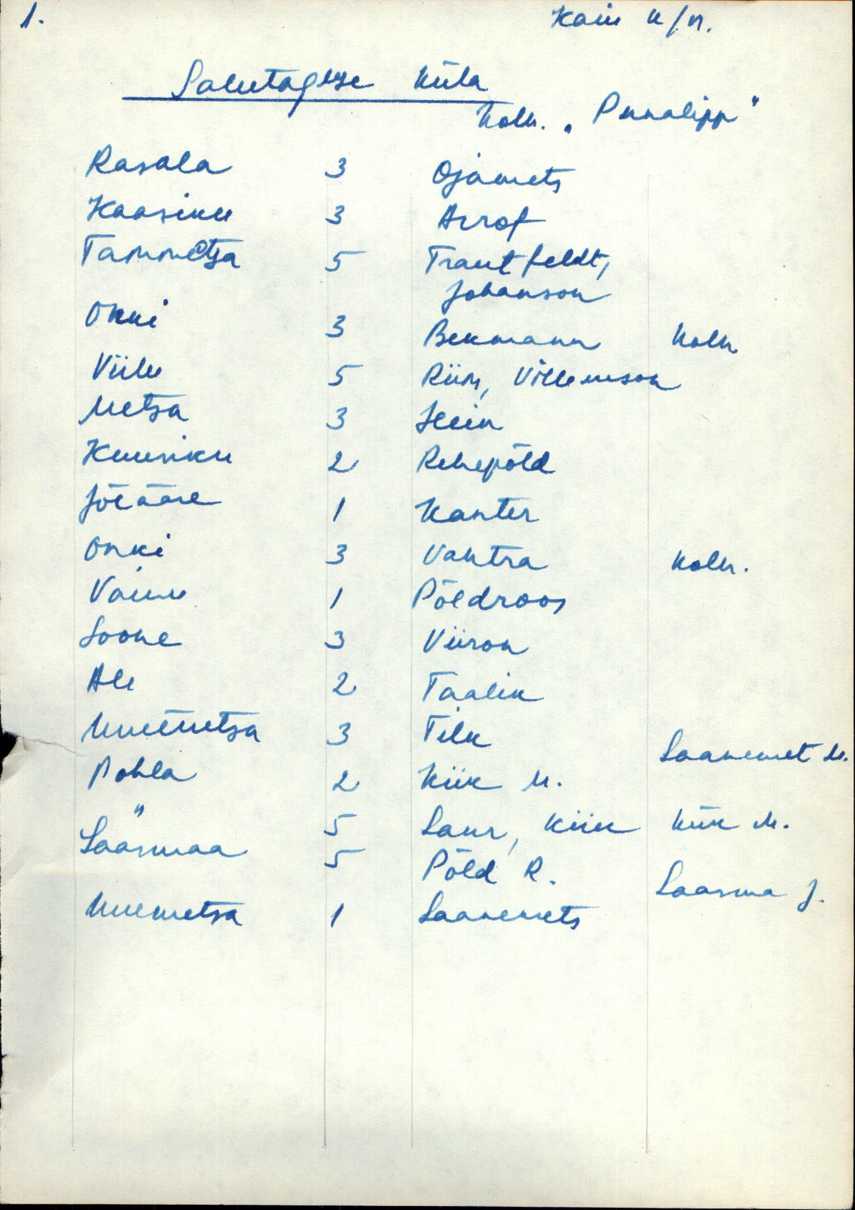 1.
Kaiu k/n.
Salutaguse küla
Kolh. "Punalipp"
Rasala 3 Ojamets
Kaasiku 3 Arrof
Tammetsa 5 Trautfeldt,
Johanson
Onki 3 Bekmann kolh
Viilu 5 Riim, Villemson
Metsa 3 Hein
Kuusiku 2 Rehepõld
Jõeääre 1 Kanter
Onki 3 Vahtra kolh.
Vainu 1 Põldroos
Soone 3 Viiron
Ale 2 Taalik
Uuemetsa 3 Tilk Saanemet M.
Pohla 2 Kiik M.
" 5 Saur, Kiik Kiik M.
Saarmaa 5 Põld R. Saarma J.
Uuemetsa 1 Saanemets